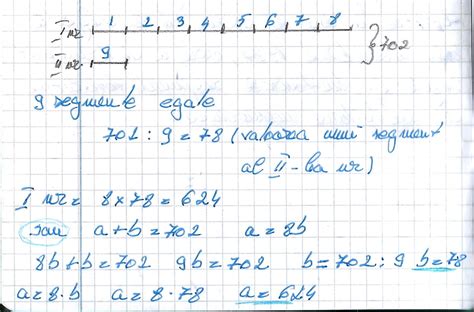 1 2 3 4 5 6 7 8
I nr.
II nr. 9
}702
9 segmente egale
701 : 9 = 78 (valoarea unui segment
al II-lea nr)
I nr = 8 x 78 = 624
sau a + b = 702 a = 8b
8b + b = 702 9b = 702 b = 702 : 9 b = 78
a = 8 . b a = 8 . 78 a = 624